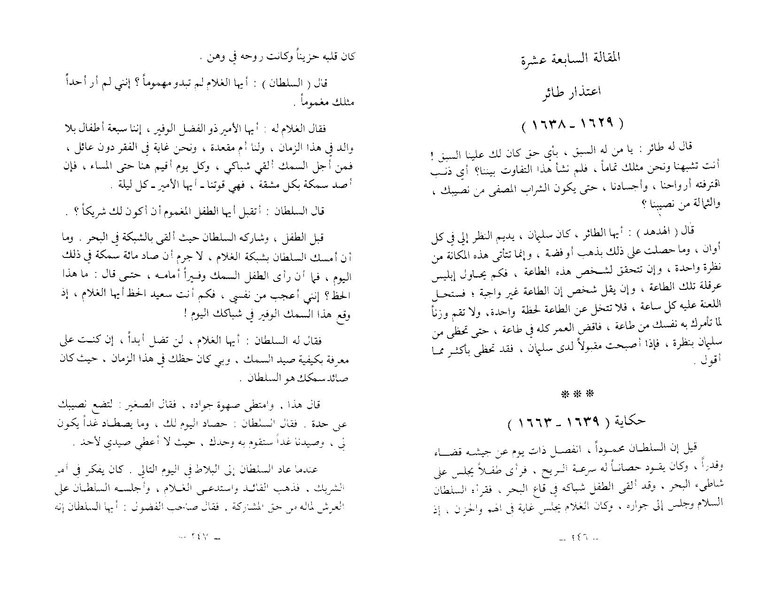 المقالة السابعة عشرة
اعتذار طائر
( ١٦٢٩ - ١٦٣٨ )
قال له طائر : يا من له السبق ، بأي حق كان لك علينا السبق !
أنت تشبهنا ونحن مثلك تماماً ، فلم نشأ هذا التفاوت بيننا؟ أي ذنب
اقترفته أرواحنا ، وأجسادنا ، حتى يكون الشراب المصفى من نصيبك ،
والثمالة من نصيبنا ؟
قال ( الهدهد ) : أيها الطائر ، كان سليمان ، يديم النظر إلي في كل
أوان ، وما حصلت على ذلك بذهب أو فضة ، وإنما تتأتى هذه المكانة من
نظرة واحدة ، وإن تتحقق لشخص هذه الطاعة ، فكم يحاول إبليس
عرقلة تلك الطاعة ، وإن يقل شخص إن الطاعة غير واجبة ؛ فستحل
اللعنة عليه كل ساعة ، فلا تتخل عن الطاعة لحظة واحدة، ولا تقم وزناً
لما تأمرك به نفسك من طاعة ، فاقض العمر كله في طاعة ، حتى تحظى من
سليمان بنظرة ، فإذا أصبحت مقبولاً لدى سليمان ، فقد تحظى بأكثر مما
أقول .
***
حكاية ( ١٦٣٩ - ١٦٦٣ )
قيل إن السلطان محموداً ، انفصل ذات يوم عن جيشه قضاء
وقدراً ، وكان يقود حصاناً له سرعة الريح ، فرأى طفلاً يجلس على
شاطىء البحر ، وقد ألقى الطفل شباكه في قاع البحر ، فقرأه السلطان
السلام وجلس إلى جواره ، وكان الغلام يجلس غاية في الهم والحزن ، إذ
– ٢٤٦ –
كان قلبه حزيناً وكانت روحه في وهن .
قال ( السلطان ) : أيها الغلام لم تبدو مهموماً ؟ إنني لم أر أحداً
مثلك مغموماً .
فقال الغلام له : أيها الأمير ذو الفضل الوفير ، إننا سبعة أطفال بلا
والد في هذا الزمان ، ولنا أم مقعدة ، ونحن غاية في الفقر دون عائل ،
فمن أجل السمك ألقي شباكي ، وكل يوم أقيم هنا حتى المساء ، فإن
أصد سمكة بكل مشقة ، فهي قوتنا ـ أيها الأمير ـ كل ليلة .
قال السلطان : أتقبل أيها الطفل المغموم أن أكون لك شريكاً ؟ .
قبل الطفل ، وشاركه السلطان حيث ألقى بالشبكة في البحر . وما
أن أمسك السلطان بشبكة الغلام ، لا جرم أن صاد مائة سمكة في ذلك
اليوم ، فما أن رأى الطفل السمك وفيراً أمامه ، حتى قال : ما هذا
الحظ؟ إنني أعجب من نفسي ، فكم أنت سعيد الحظ أيها الغلام ، إذ
وقع هذا السمك الوفير في شباكك اليوم !
فقال له السلطان : أيها الغلام ، لن تضل أبداً ، إن كنت على
معرفة بكيفية صيد السمك ، وبي كان حظك في هذا الزمان ، حيث كان
صائد سمكك هو السلطان .
قال هذا ، وامتطى صهوة جواده ، فقال الصغير : لتضع نصيبك
على حدة . فقال السلطان : حصاد اليوم لك ، وما يصطاد غداً يكون
لي ، وصيدنا غداً ستقوم به وحدك ، حيث لا أعطي صيدي لأحد .
عندما عاد السلطان إلى البلاط في اليوم التالي . كان يفكر في أمر
الشريك ، فذهب القائد واستدعى الغلام ، وأجلسه السلطان على
العرش لماله من حق المشاركة . فقال صاحب الفضول : أيها السلطان إنه
– ٢٤٧ –